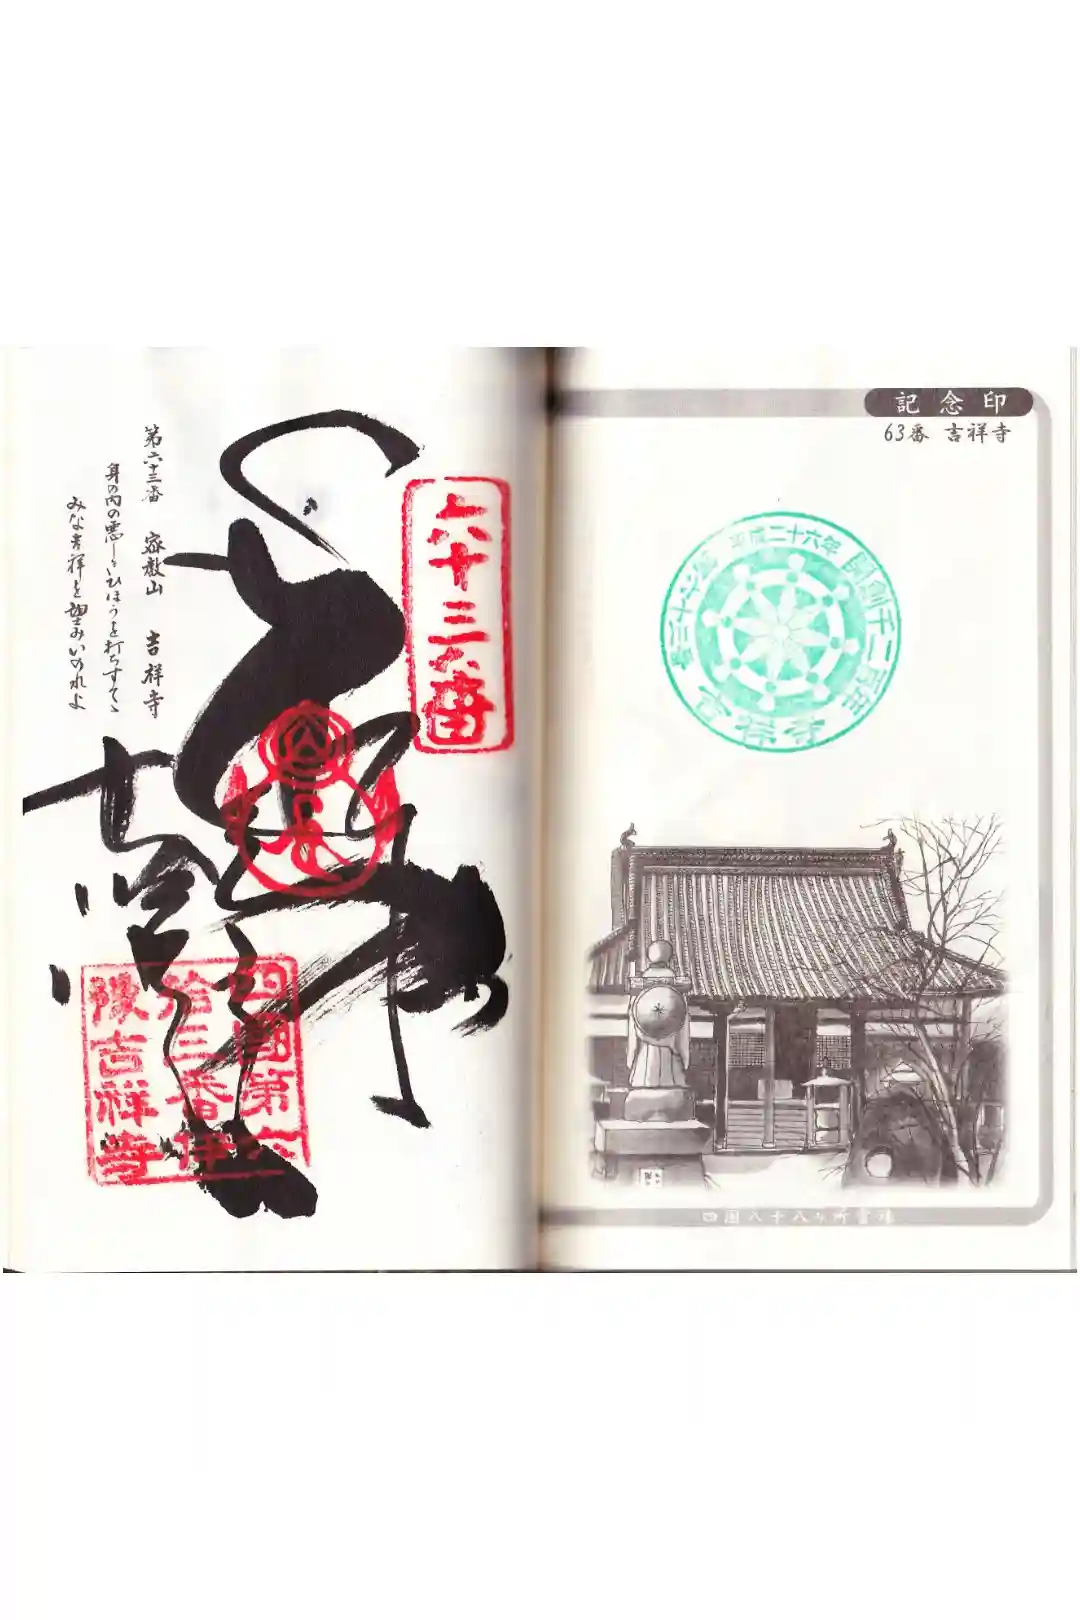 第六十三番 密教山 吉祥寺
身の内の悪しきひほうを打ちすてゝ
みな吉祥を望みいのれよ
六十三番
吉祥寺
四國第六
拾三番伊
豫吉祥寺
記念印
63番 吉祥寺
平成二十六年 開創千二百年
第六十三番
吉祥寺
四国八十八ヶ所霊場